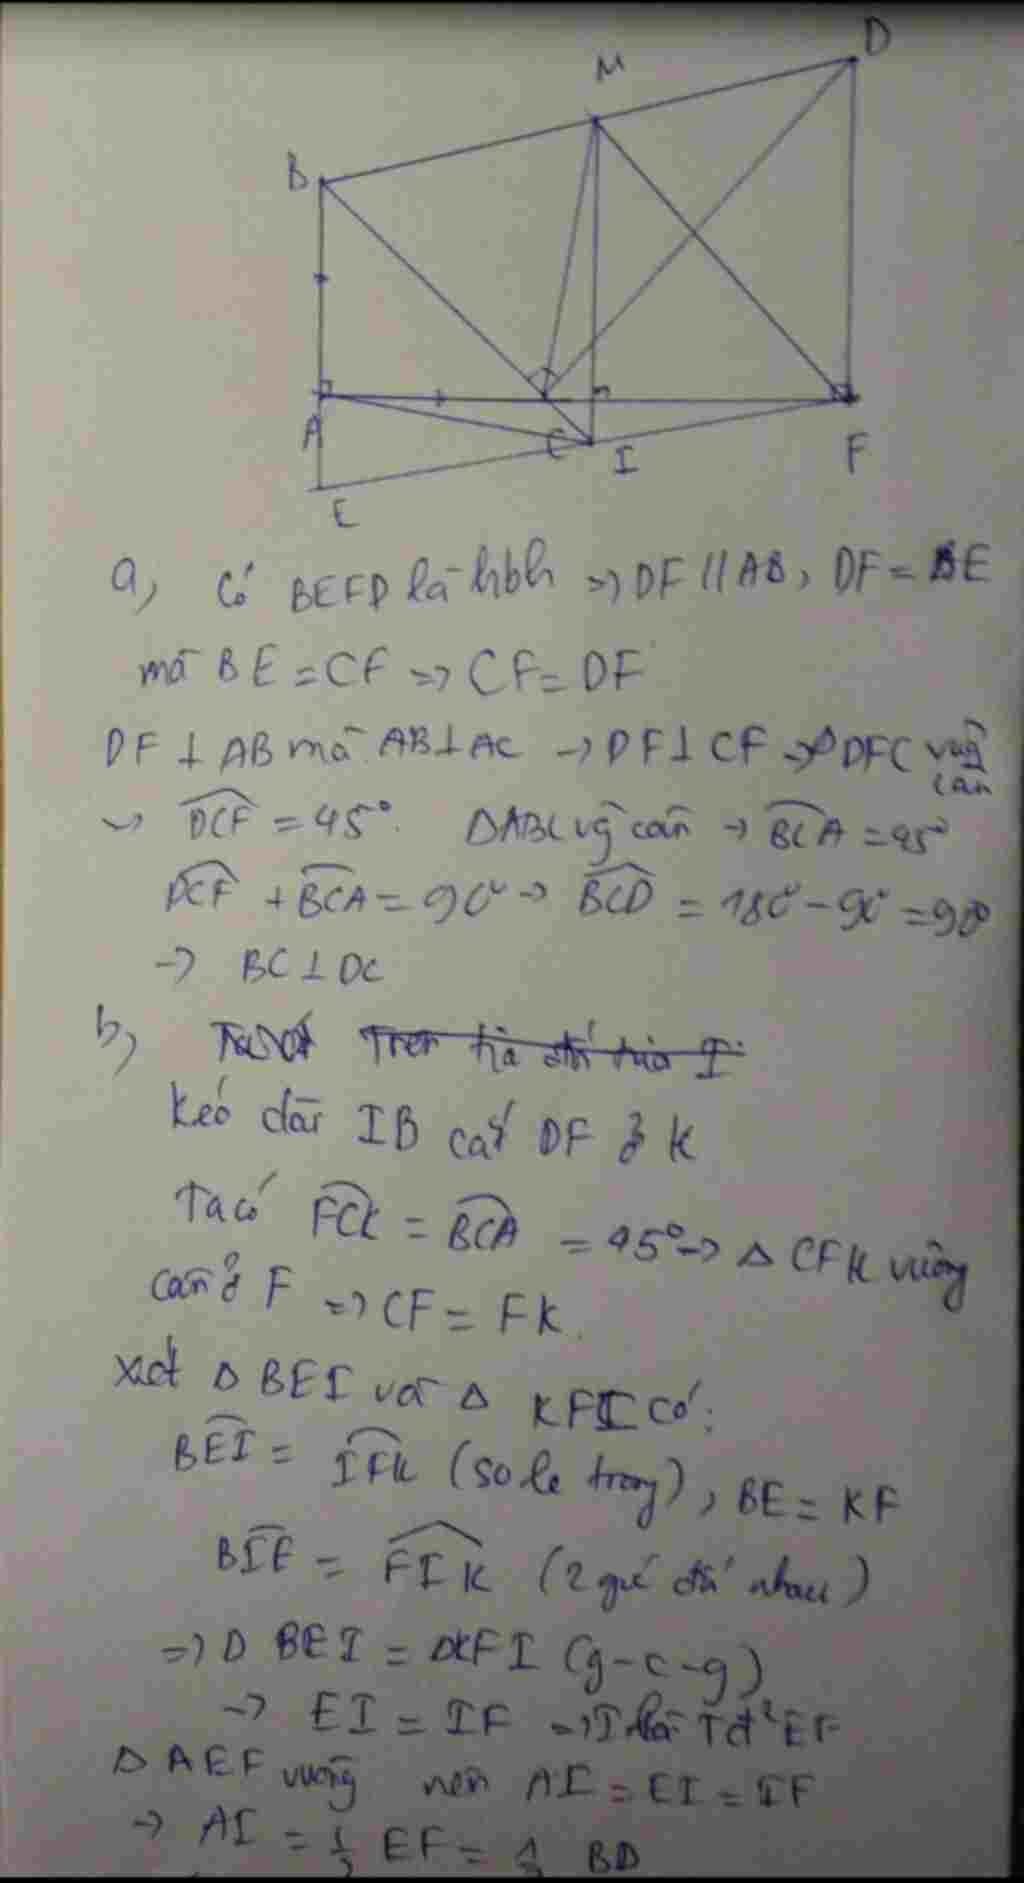 D
M
B
A
C
I
F
E
a, Có BEFD là hbh => DF // AB, DF = BE
mà BE = CF => CF = DF
DF ⊥ AB mà AB ⊥ AC → DF ⊥ CF → Δ DFC vuông
cân
→ DCF = 45°. ΔABC vg cân → BCA = 45°
DCF + BCA = 90° → BCD = 180° - 90° = 90°
→ BC ⊥ DC
b,
Kéo dài IB cắt DF ở K
Ta có FCK = BCA = 45° → Δ CFK vuông
cân ở F => CF = FK.
Xét Δ BEI và Δ KFI có:
BEI = IFK (so le trong), BE = KF
BIE = FIK (2 góc đối nhau)
=> Δ BEI = ΔKFI (g-c-g)
→ EI = IF => I là Tđ² EF
Δ AEF vuông nên AI = EI = IF
→ AI = 1/2 EF = 1/2 BD